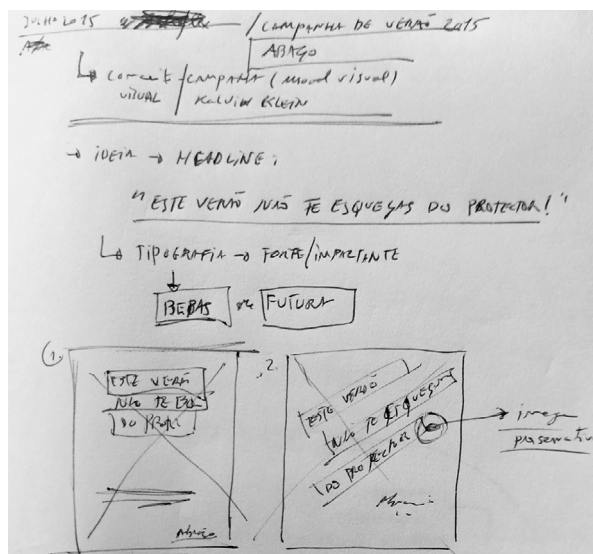 JULHO 2015 / CAMPANHA DE VERÃO 2015
ABAÇO
CAMPANHA (mood visual)
VISUAL / KALVIN KLEIN
→ iDEIA → HEADLINE:
"ESTE VERÃO NÃO TE ESQUEÇAS DO PROTECTOR!"
TIPOGRAFIA → FORTE/IMPACTANTE
BEBAS ou FUTURA
1.
ESTE VERÃO
NÃO TE ESQ
DO PROTE
Abraço
2.
ESTE VERÃO
NÃO TE ESQUEÇAS
DO PROTECTOR
→ imagem
preservativo